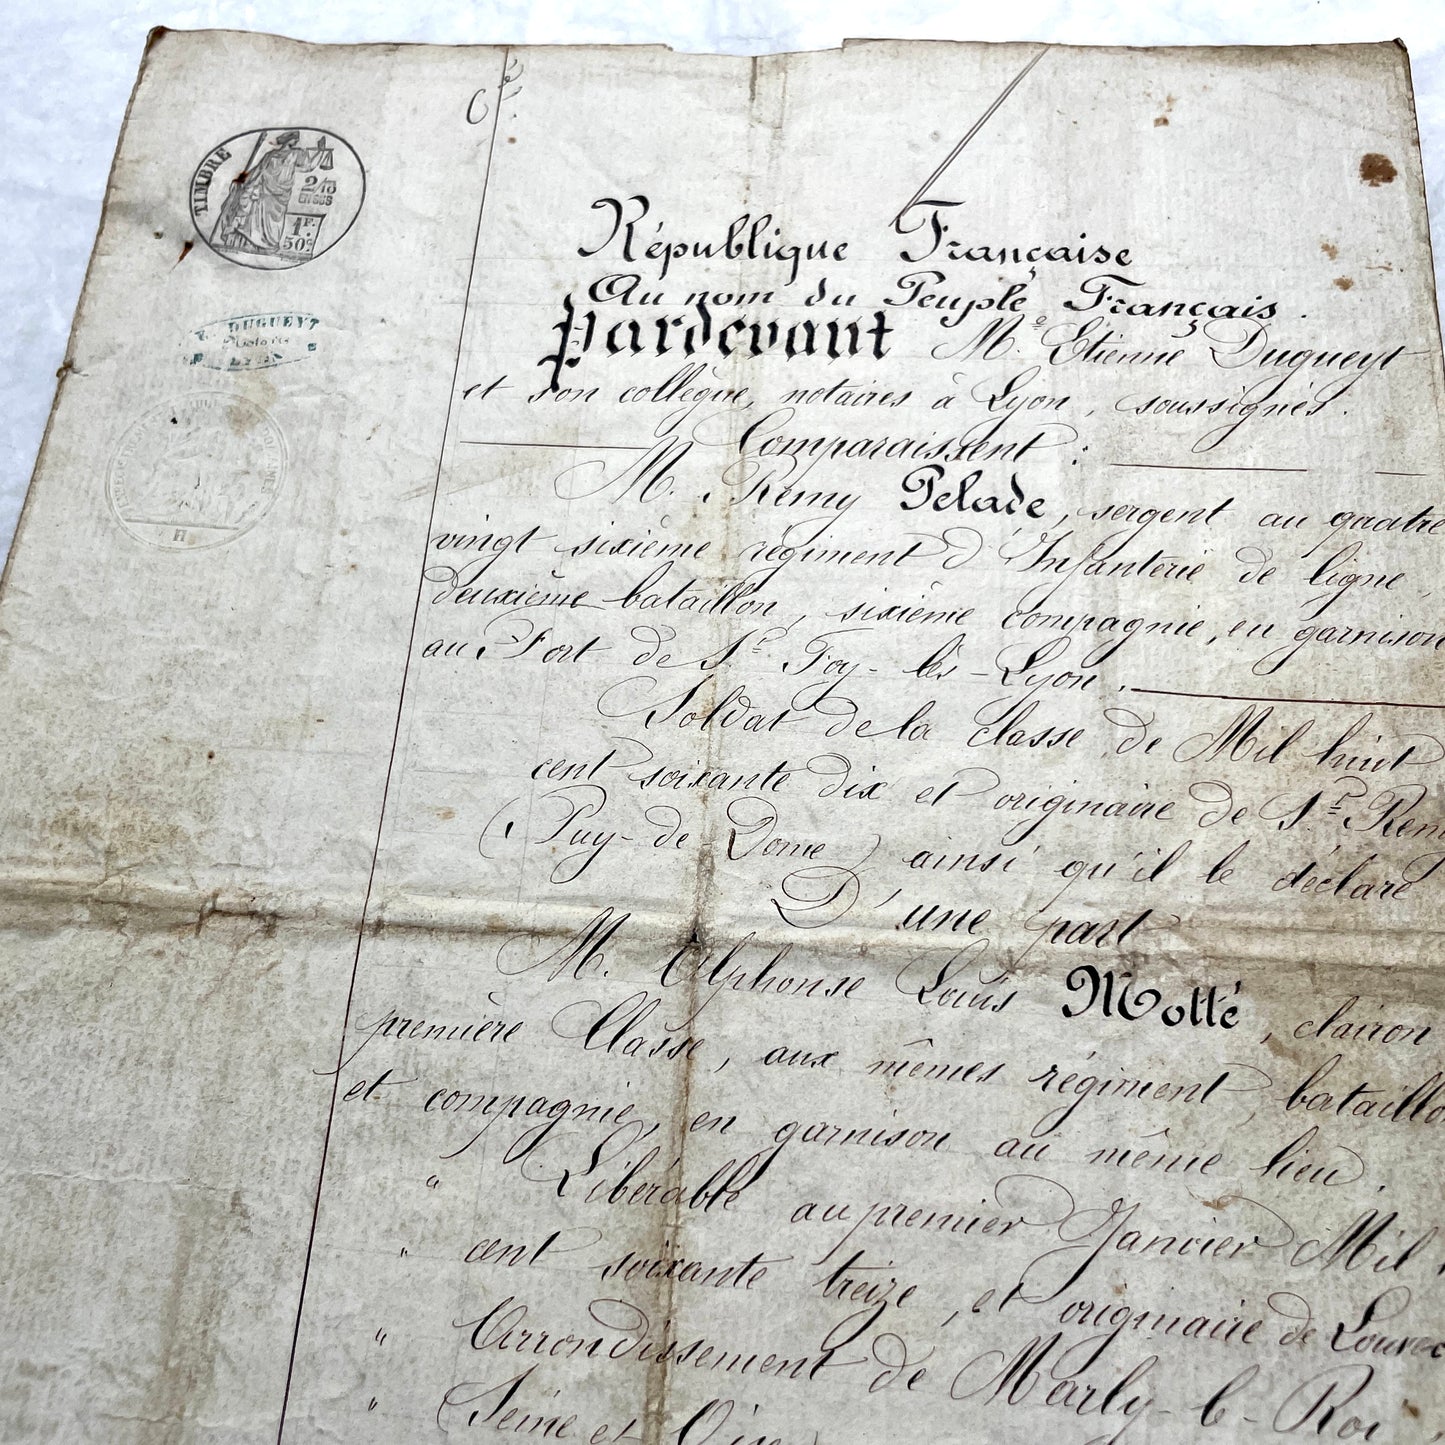 TIMBRE
2/10
EN SUS
1F.
50c.
DUGUEYT
Notaire
LYON
République Française
Au nom du Peuple Français.
Pardevant Me Etienne Dugueyt
et son collègue, notaires à Lyon, soussignés.
Comparaissent :
M. Remy Pelade, sergent au quatre
vingt sixième régiment d'Infanterie de ligne,
deuxième bataillon, sixième compagnie, en garnison
au Fort de Ste Foy-lès-Lyon.
Soldat de la classe de Mil huit
cent soixante dix et originaire de St Remy
(Puy-de-Dome) ainsi qu'il le déclare
D'une part
M. Alphonse Louis Motté, clairon
première Classe, aux mêmes régiment, bataillo
et compagnie, en garnison au même lieu.
" Libérable au premier Janvier Mil
" cent soixante treize, et originaire de Louvec
" Arrondissement de Marly-le-Roi,
" (Seine et Oise)